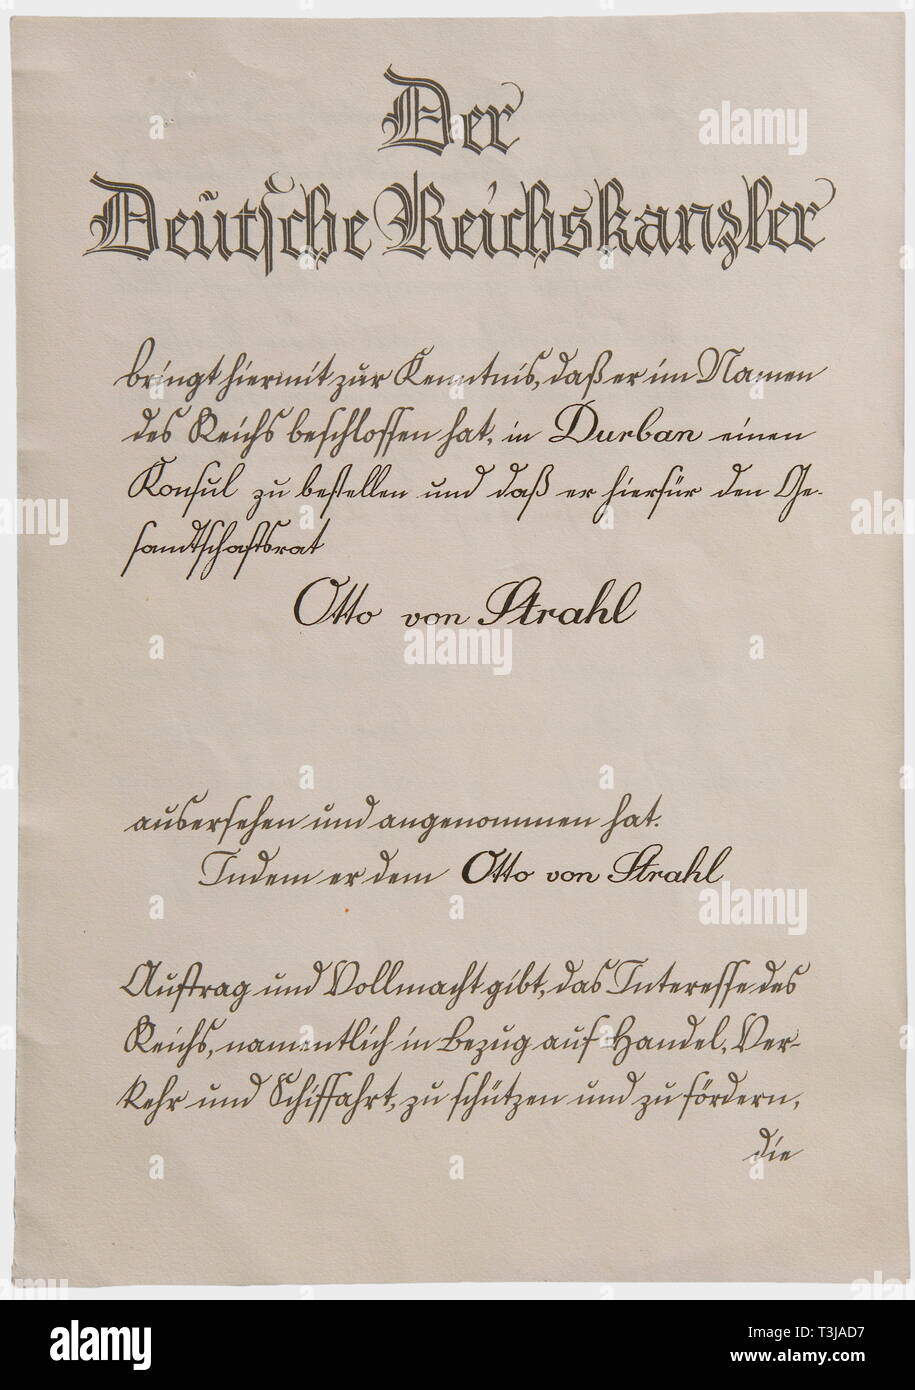 Der
Deutsche Reichskanzler
bringt hiermit zur Kenntnis, daß er im Namen
des Reichs beschlossen hat, in Durban einen
Konsul zu bestellen und daß er hierfür den Ge-
sandtschaftsrat
Otto von Strahl
ausersehen und angenommen hat.
Indem er dem Otto von Strahl
Auftrag und Vollmacht gibt, das Interesse des
Reichs, namentlich in Bezug auf Handel, Ver-
kehr und Schiffahrt, zu schützen und zu fördern,
die
alamy
Image ID: T3JAD7
www.alamy.com